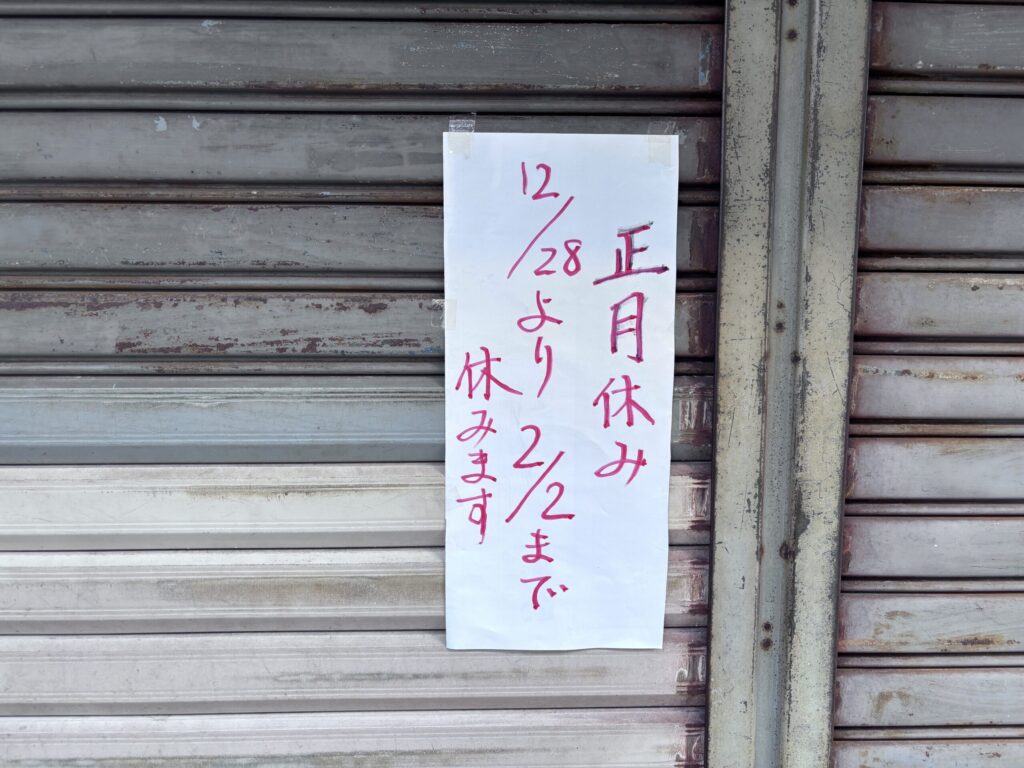 正月休み
12/28より2/2まで
休みます